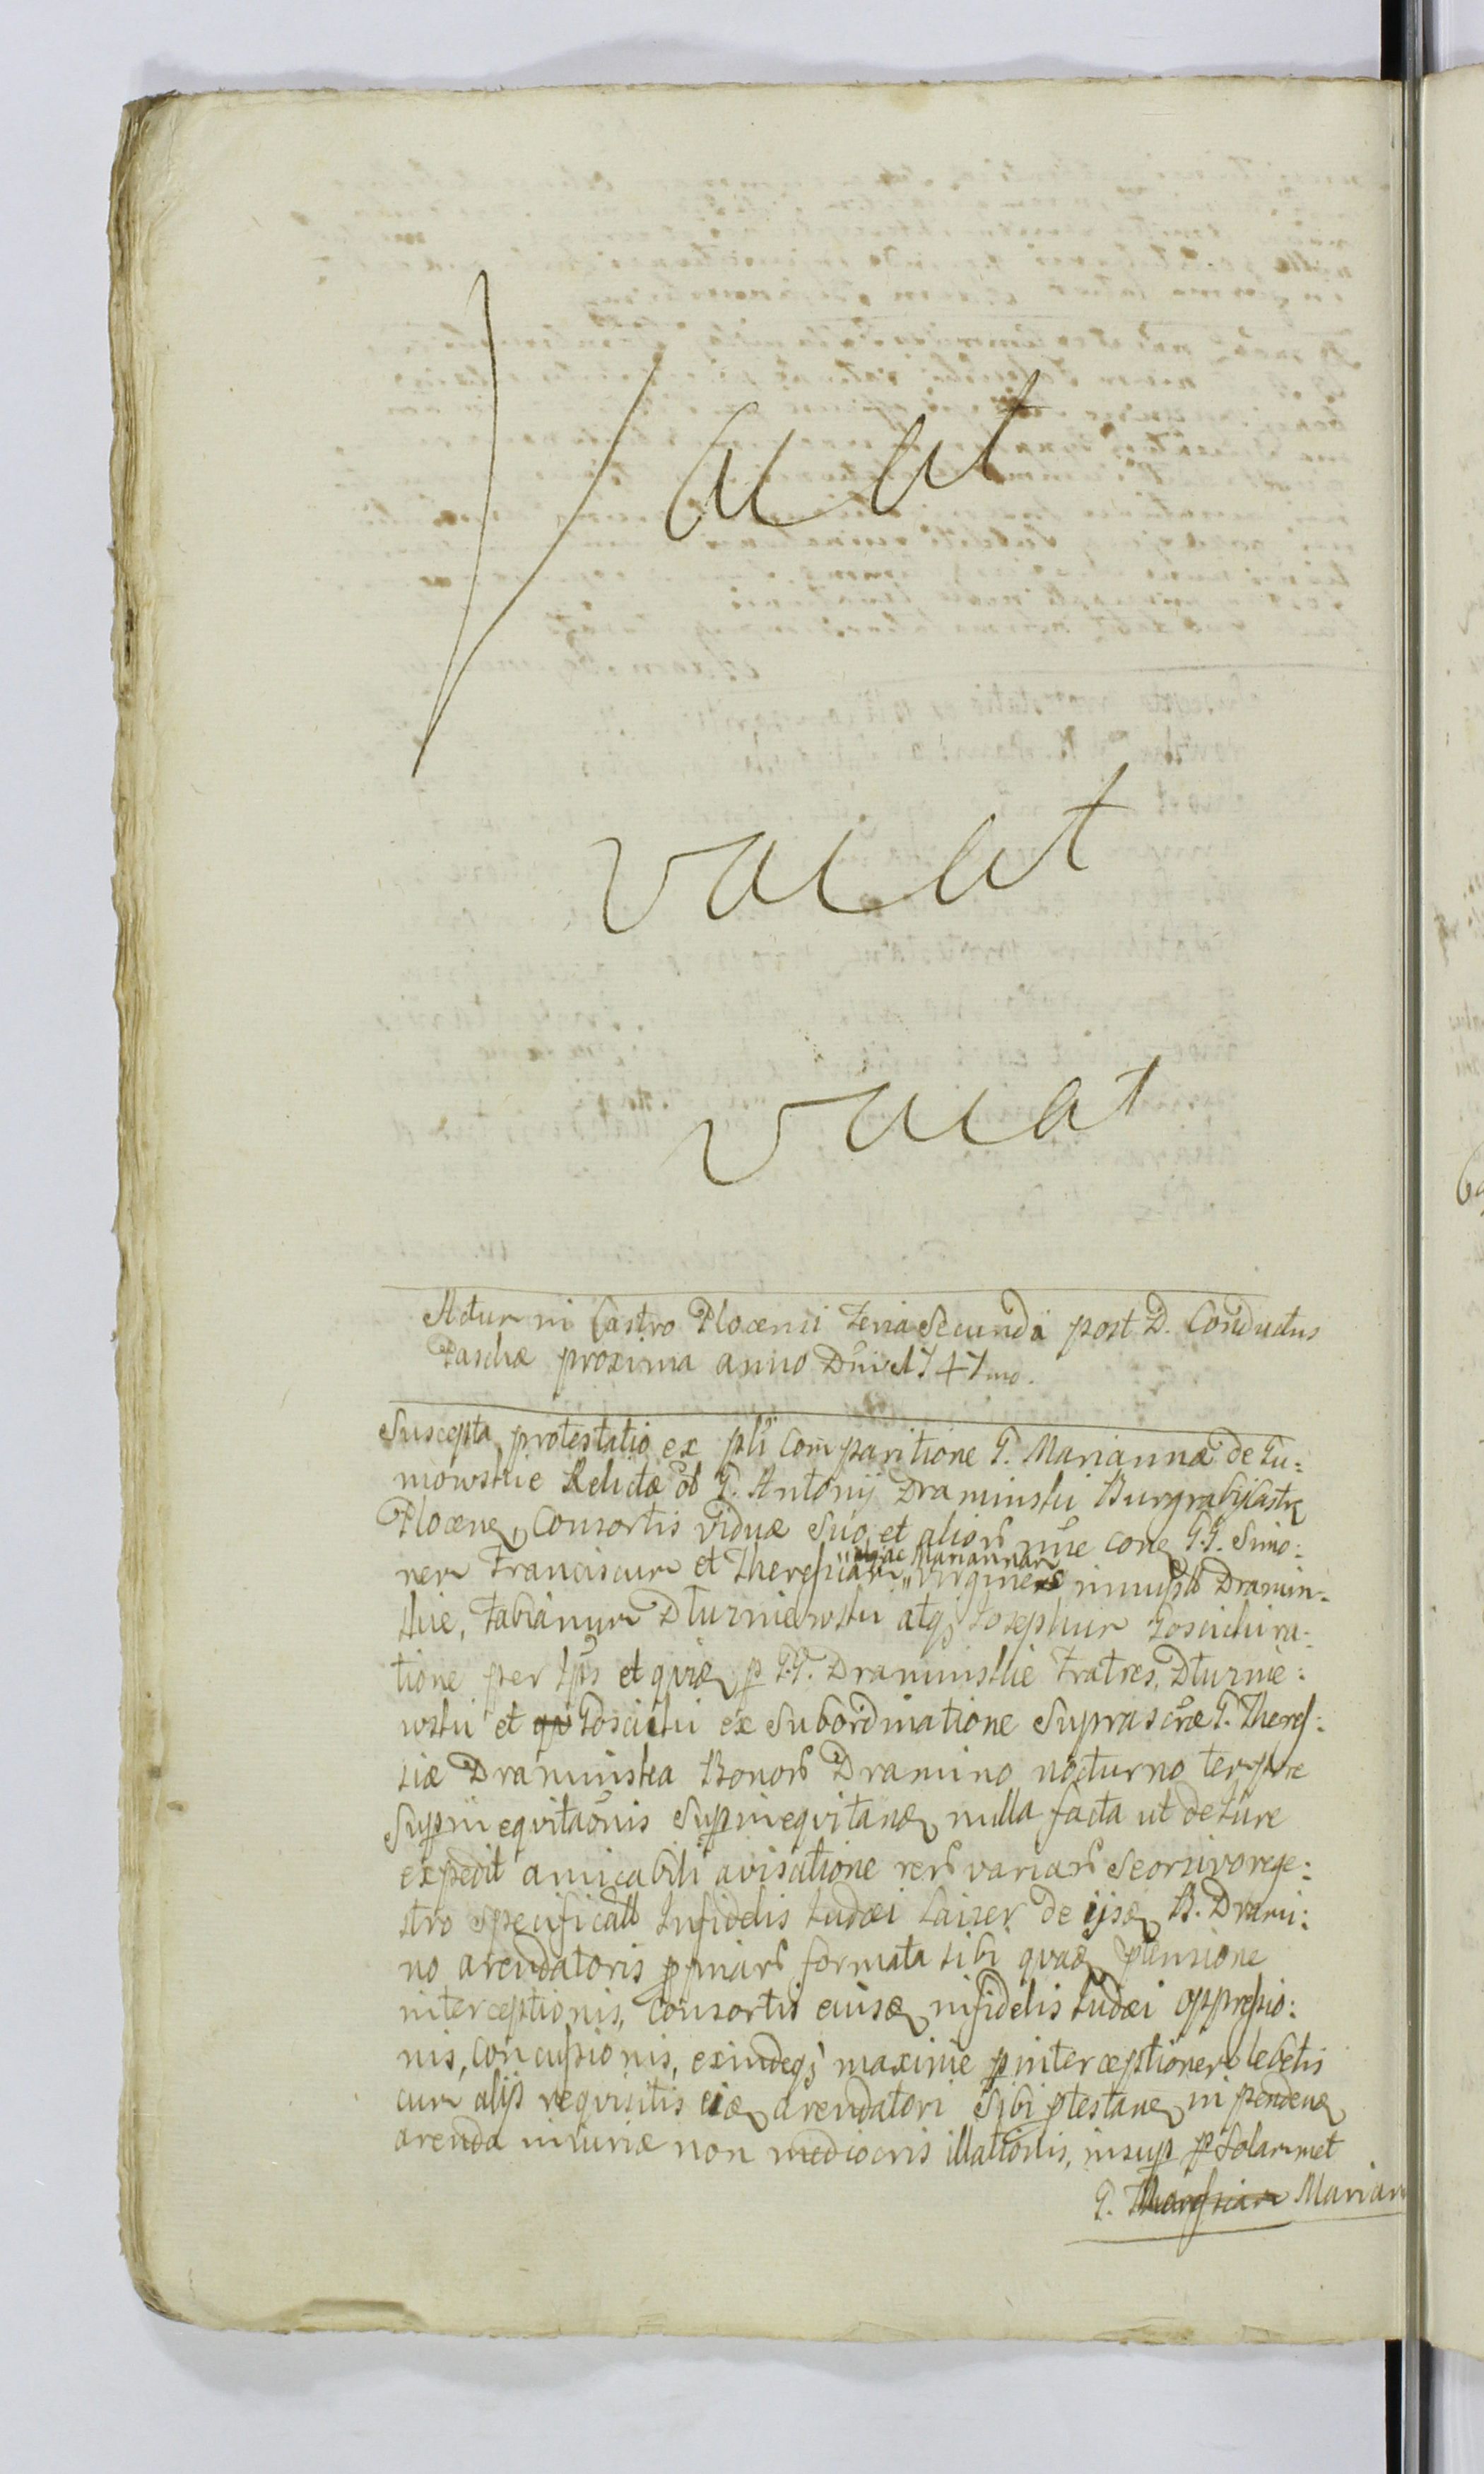 Vacat
vacat
vacat
Actum in Castro Plocensi Feria Secunda post D. Conductus
Paschæ proxima anno Dni 1747mo.
Suscepta protestatio ex pli comparitione G. Mariannæ de Gu:
mowskie Relictæ ol G. Antonij Draminski Burgrabij Castr
Plocen, Consortis viduæ suo et aliorũ nõie con G.G. Simo:
nem Franciscum et Theresiam "ac Mariannam" Virgines Dramin:
skie, Fabianum Dłuzniewski atq Josephum Gosciecki ra:
tione per Ips et quia p G.G. Draminskie Fratres, Dłuznie:
wski et Goscicki ex Subordinatione Suprascræ G. Theres:
siæ Draminska Bonorũ Dramino nocturno tempore
Superinequitaõnis Superinequitan nulla facta ut de Iure
expedit amicabili avisatione rerũ variarũ Seorsivo rege:
stro specificat Infidelis Iudæi Laizer de ijs B. Drami:
no arendatoris ppriarũ formata sibi quad ptensione
interceptionis, Consortis eius infidelis Iudæi oppressio:
nis, Concussionis, exindeq maxime p interceptionem lebetis
cum alijs requisitis ei arendatori Sibi ptestan in penden
arenda iniuriæ non mediocris illationis, insup p Solammet
G. Theresiam Mariam